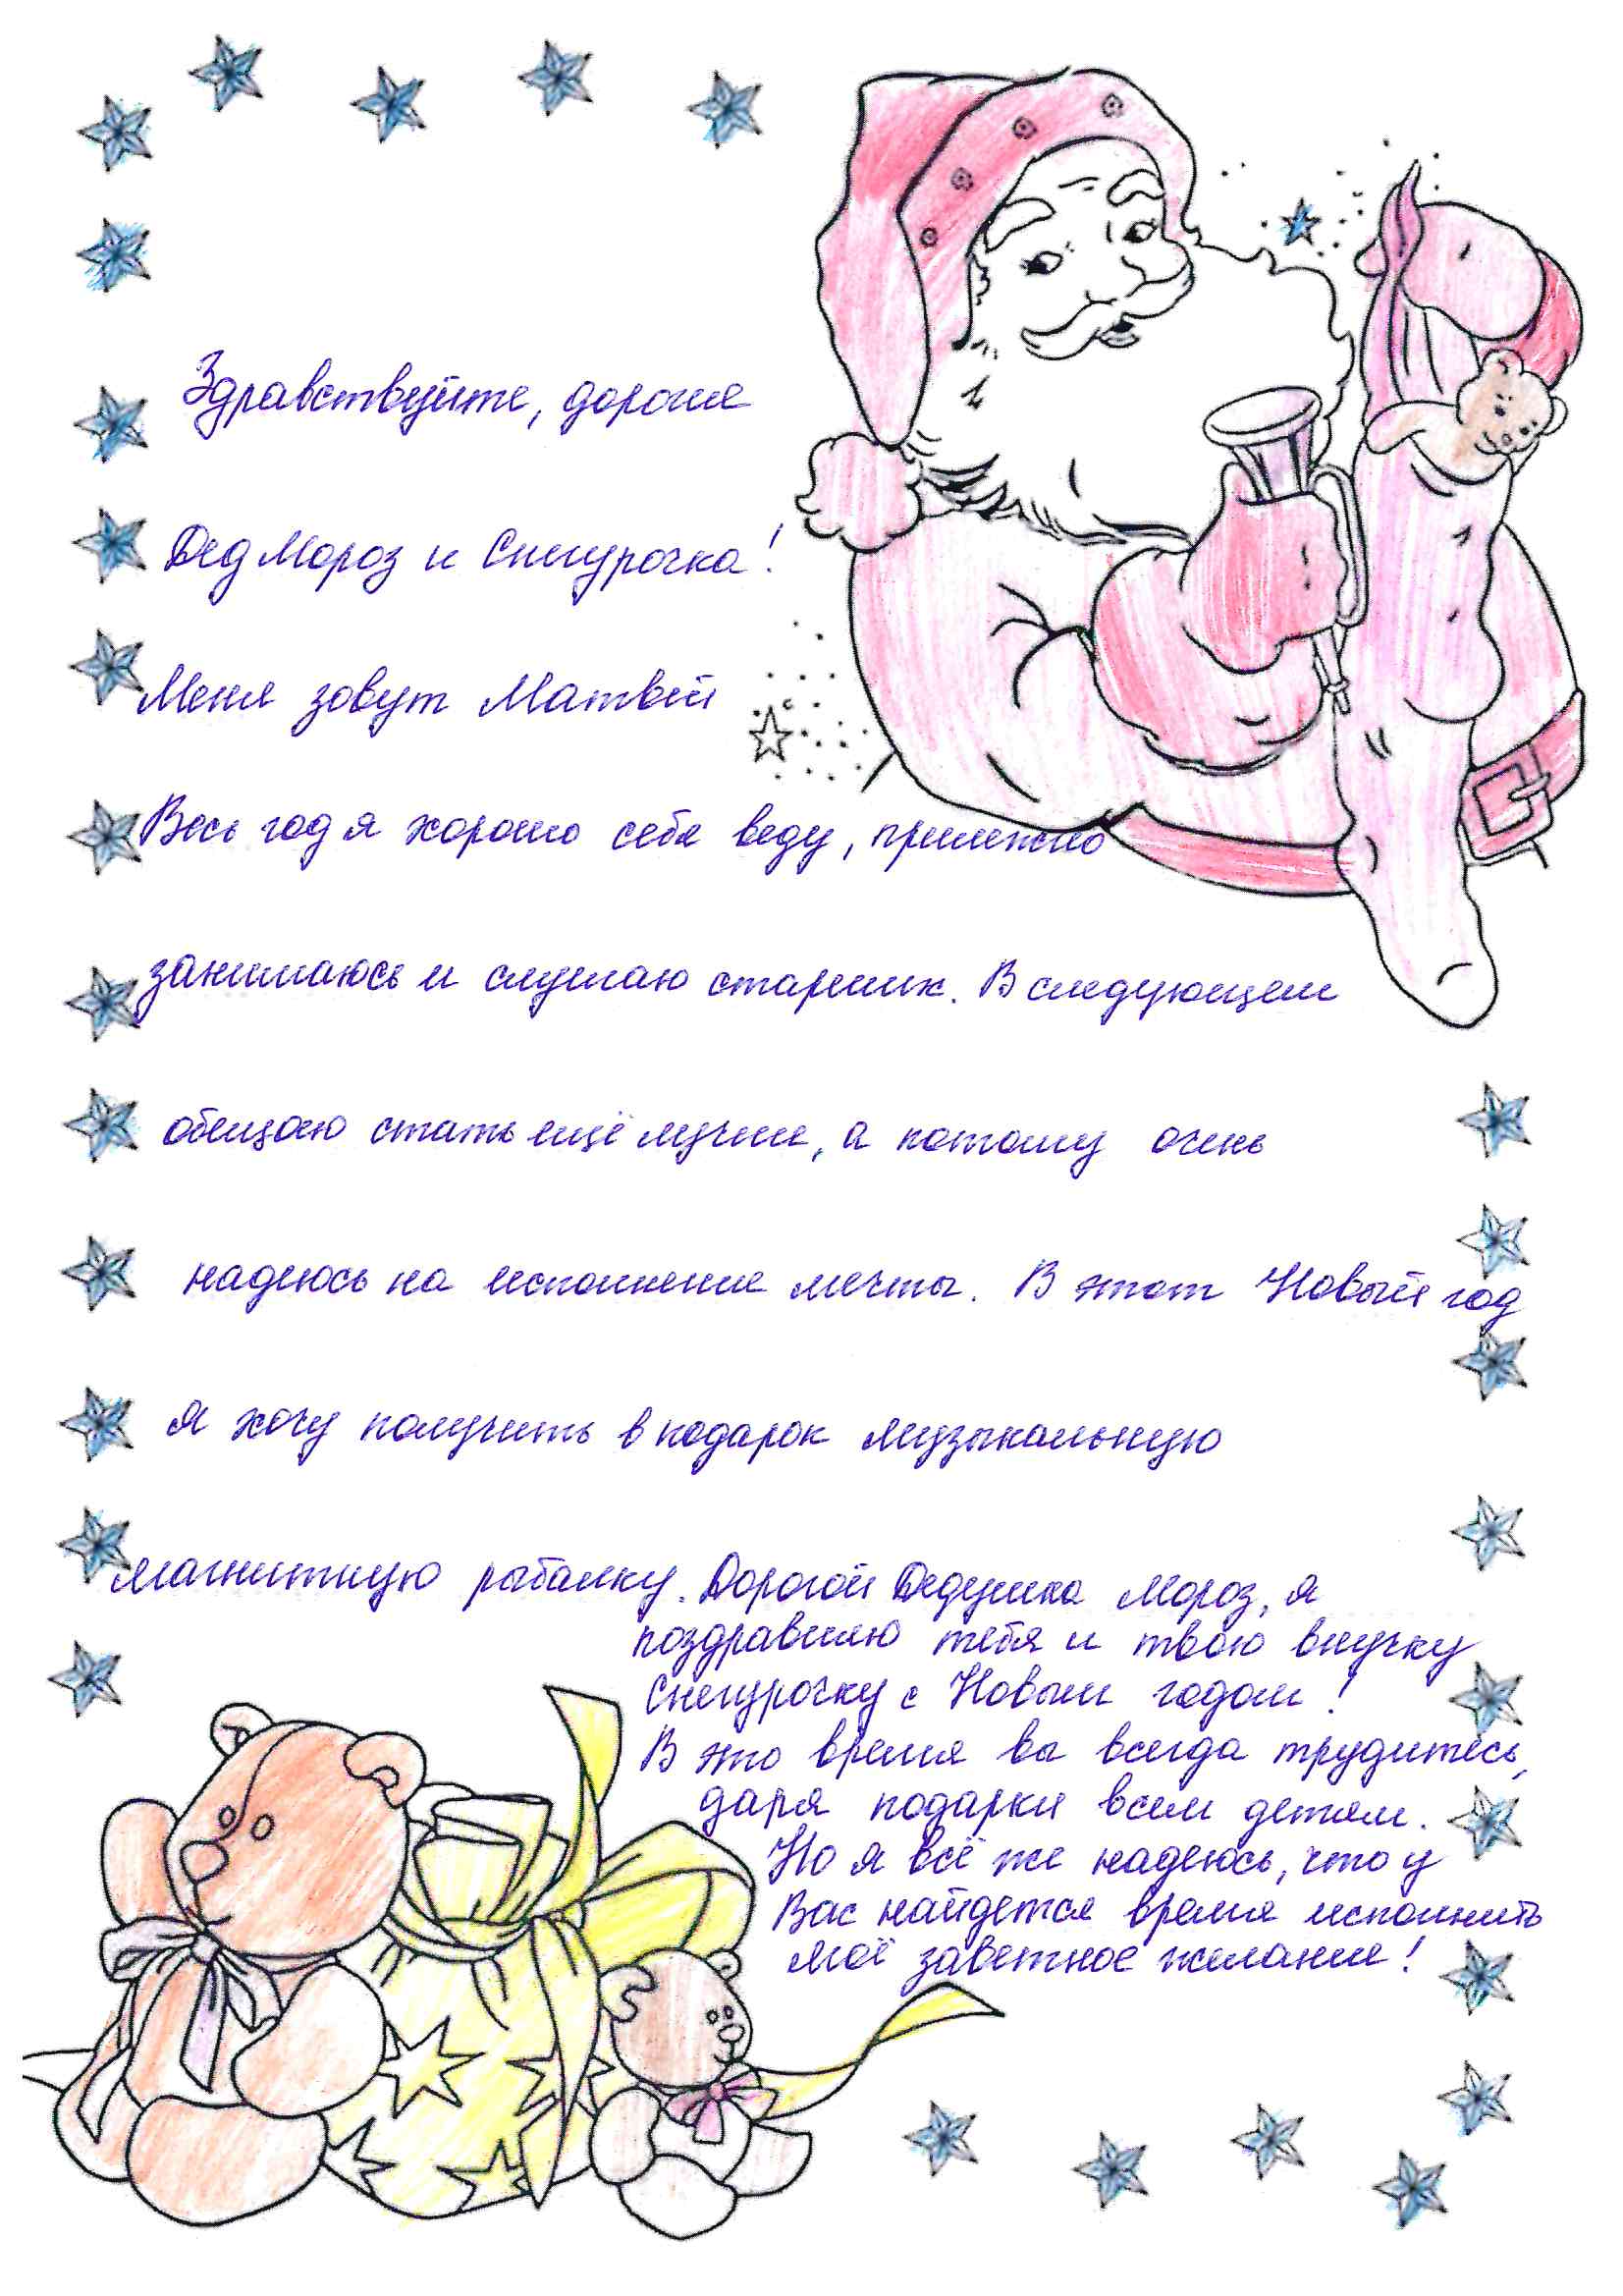 Здравствуйте, дорогие
Дед Мороз и Снегурочка!
Меня зовут Матвей
Весь год я хорошо себя веду, прилежно
занимаюсь и слушаю старших. В следующем
обещаю стать ещё лучше, а потому очень
надеюсь на исполнение мечты. В этот Новый год
я хочу получить в подарок музыкальную
магнитную рыбалку. Дорогой Дедушка Мороз, я
поздравляю тебя и твою внучку
Снегурочку с Новым годом!
В это время вы всегда трудитесь,
даря подарки всем детям.
Но я всё же надеюсь, что у
Вас найдется время исполнить
моё заветное желание!